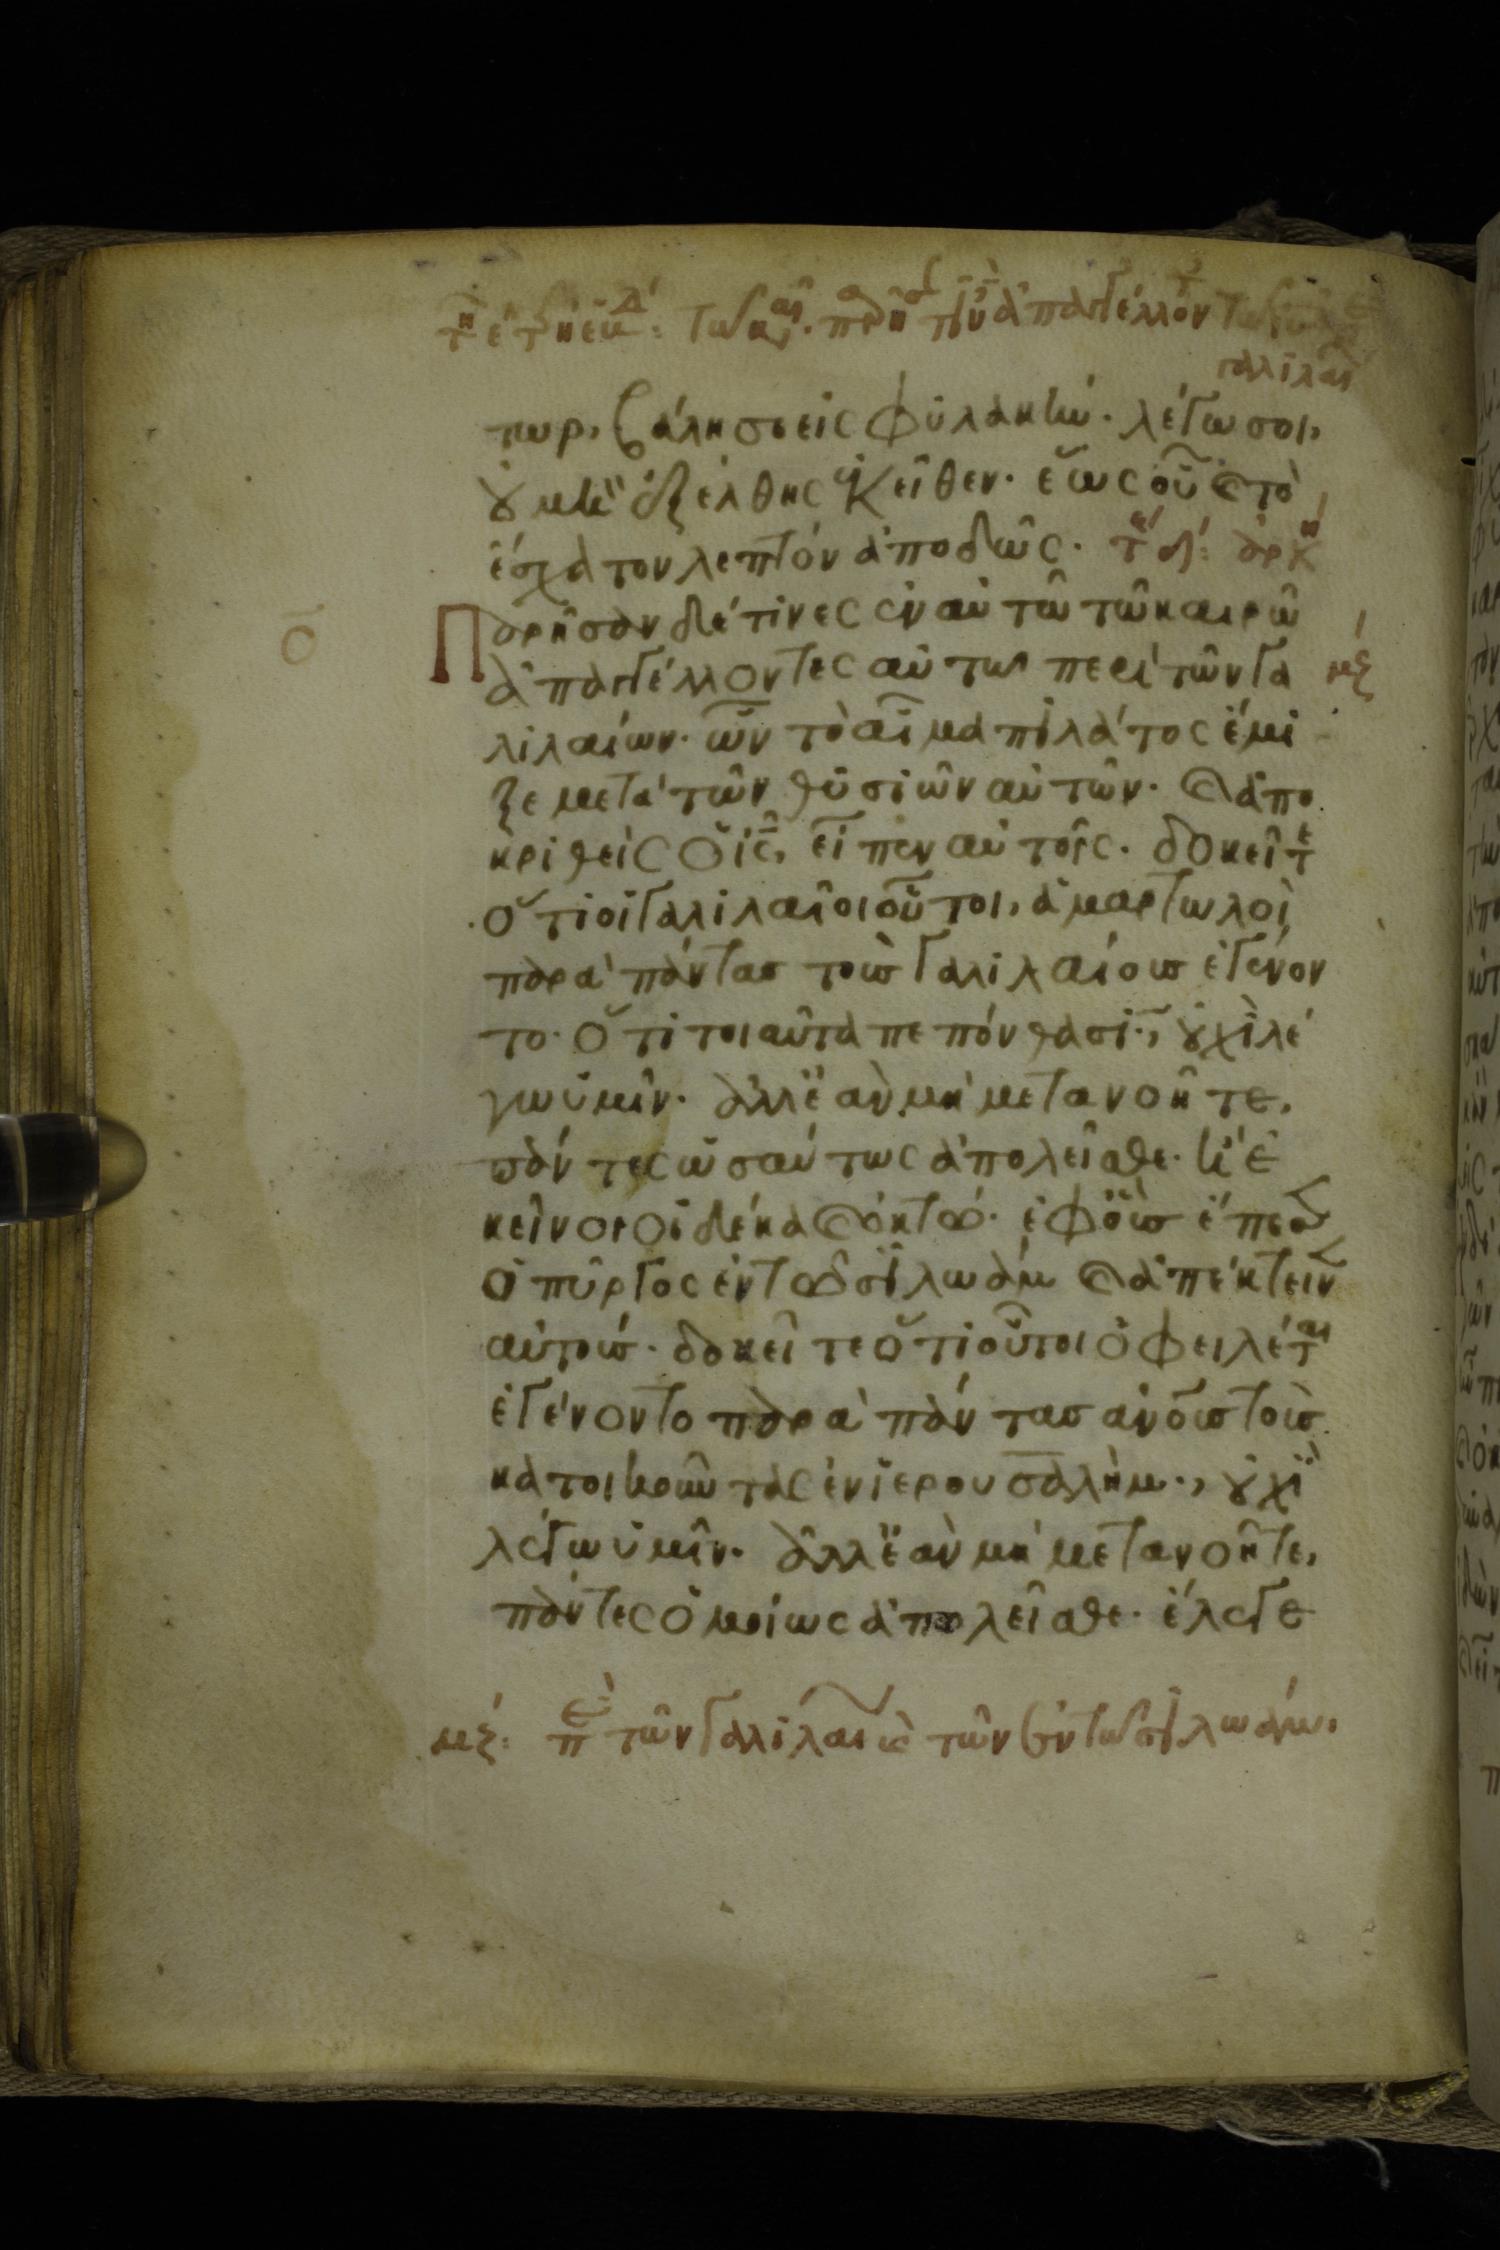 τωρ, βάλη σε εἰς φυλακήν· λέγω σοι,
οὐ μὴ ἐξέλθης ἐκεῖθεν· ἕως οὗ καὶ τὸ
ἔσχατον λεπτὸν ἀποδῶς· τέλ: ἀρχ
ο Παρῆσαν δέ τινες ἐν αὐτῶ τῶ καιρῶ
ἀπαγγέλλοντες αὐτῶ περὶ τῶν Γα μζ
λιλαίων· ὧν τὸ αἷμα πιλάτος ἔμι
ξε μετὰ τῶν θυσιῶν αὐτῶν· καὶ ἀπο
κριθεὶς ὁ ις, εἶπεν αὐτοῖς· δοκεῖτε
ὅτι οἱ Γαλιλαῖοι οὗτοι, ἁμαρτωλοὶ
παρὰ πάντας τοὺς Γαλιλαίους ἐγένον
το· ὅτι τοιαῦτα πεπόνθασιν·, οὐχὶ λέ
γω ὑμῖν· ἀλλ' ἐὰν μὴ μετανοῆτε,
πάντες ὡσαύτως ἀπολεῖσθε· ἢ ἐ
κεῖνοι οἱ δέκα καὶ ὀκτὼ· ἐφ' οὓς ἔπεσεν
ὁ πύργος ἐν τῶ σιλωὰμ καὶ ἀπέκτεινεν
αὐτούς· δοκεῖτε ὅτι οὗτοι ὀφειλέται
ἐγένοντο παρὰ πάντας ἀνους τοὺς
κατοικοῦντας ἐν ἱερουσαλήμ·, οὐχὶ
λέγω ὑμῖν· ἀλλ' ἐὰν μὴ μετανοῆτε,
πάντες ὁμοίως ἀπολεῖσθε· ἔλεγε
μζ: πε τῶν Γαλιλαι καὶ τῶν ἐν τῶ σιλωάμ.